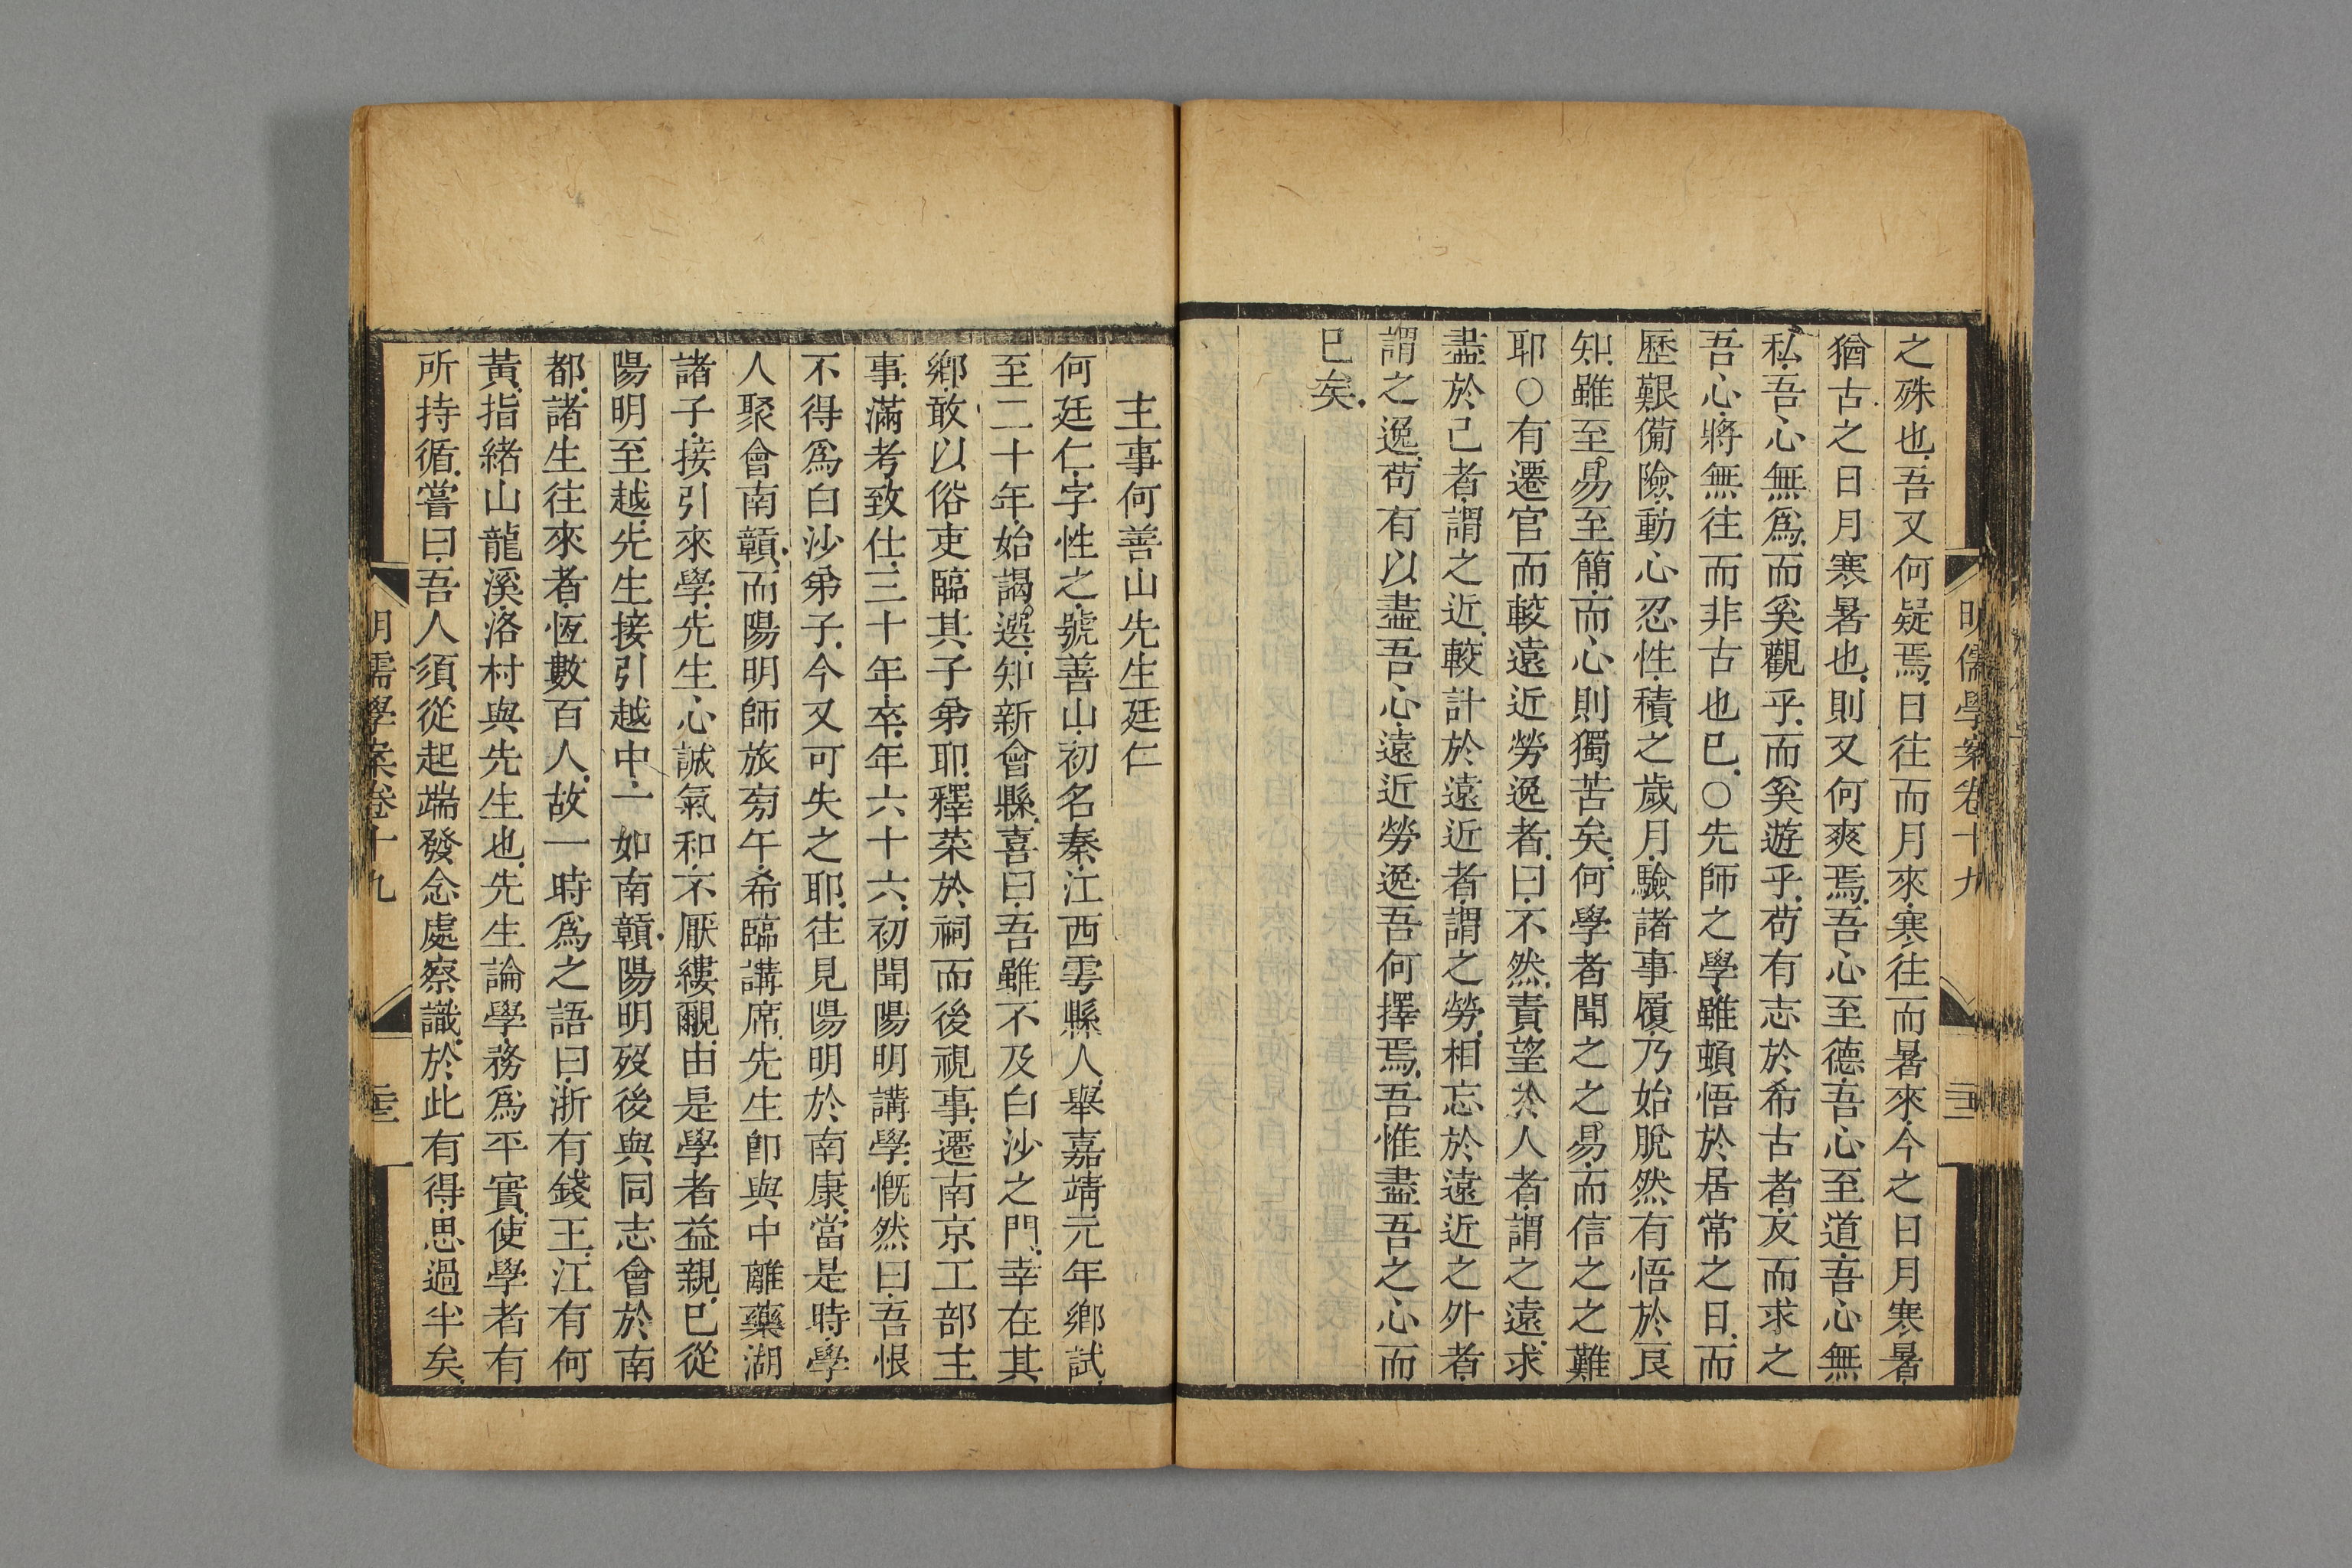 之殊也吾又何疑焉曰往而月來寒往而暑來今之日月寒暑
猶古之日月寒暑也則又何爽焉吾心至德吾心至道吾心無
私吾心無爲而奚觀乎而奚遊乎苟有志於希古者反而求之
吾心將無往而非古也已○先師之學雖頓悟於居常之日而
歷艱備險動心忍性積之歲月驗諸事履乃始脫然有悟於良
知雖至易至簡而心則獨苦矣何學者聞之之易而信之之難
耶○有遷官而較遠近勞逸者曰不然責望於人者謂之遠求
盡於己者謂之近較計於遠近者謂之勞相忘於遠近之外者
謂之逸苟有以盡吾心遠近勞逸吾何擇焉吾惟盡吾之心而
已矣
明儒學案卷十九
主事何善山先生廷仁
何廷仁字性之號善山初名秦江西雩縣人舉嘉靖元年鄉試
至二十年始謁選知新會縣喜曰吾雖不及白沙之門幸在其
鄉敢以俗吏臨其子弟耶釋菜於祠而後視事遷南京工部主
事滿考致仕三十年卒年六十六初聞陽明講學慨然曰吾恨
不得爲白沙弟子今又可失之耶往見陽明於南康當是時學
人聚會南贛而陽明師旅旁午希臨講席先生卽與中離藥湖
諸子接引來學先生心誠氣和不厭縷覼由是學者益親已從
陽明至越先生接引越中一如南贛陽明歿後與同志會於南
都諸生往來者恆數百人故一時爲之語曰浙有錢王江有何
黃指緒山龍溪洛村與先生也先生論學務爲平實使學者有
所持循嘗曰吾人須從起端發念處察識於此有得思過半矣
明儒學案卷十九